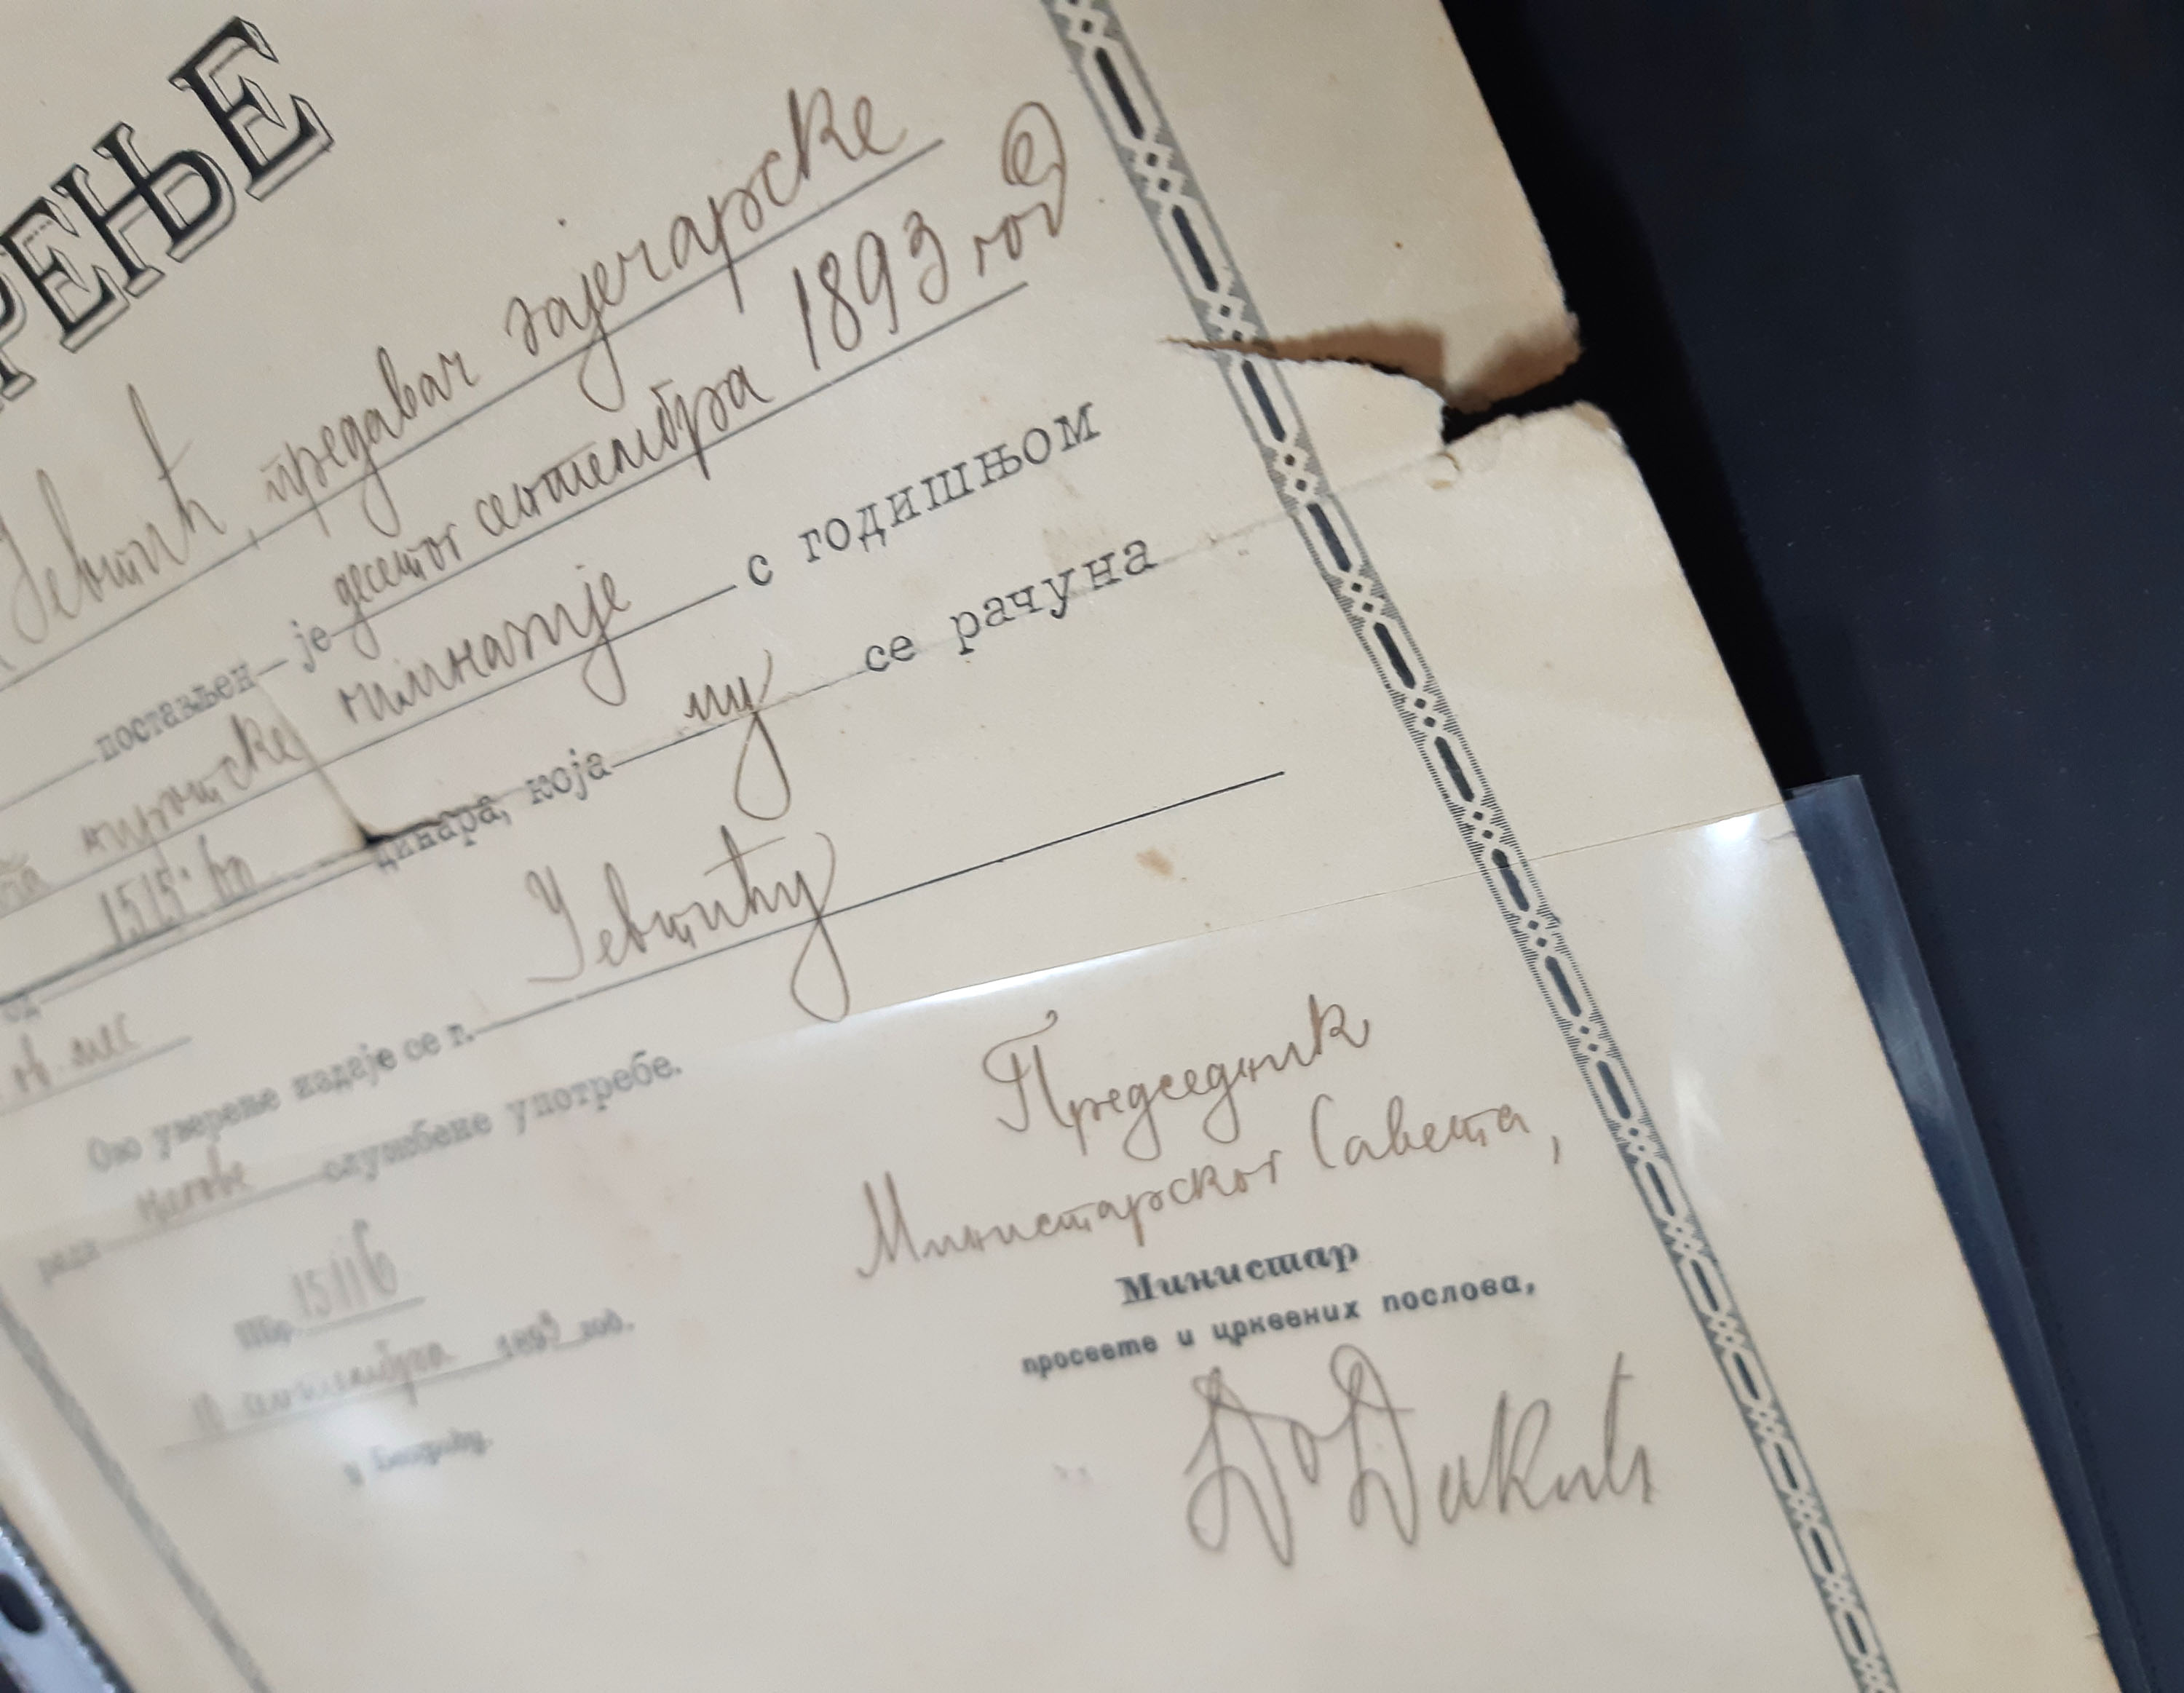 РЕЊЕ
Јевтић, предавач зајечарске
постављен је десетог септембра 1893 год
пиротске гимназије с годишњом
1515.¹⁵ динара, која му се рачуна
од
ов. мес
Ово уверење издаје се г. Јевтићу
ради његове службене употребе.
Председник
Министарског Савета,
Министар
просвете и црквених послова,
ПБр. 15116
септембра 1893 год.
у Београду.
Докић